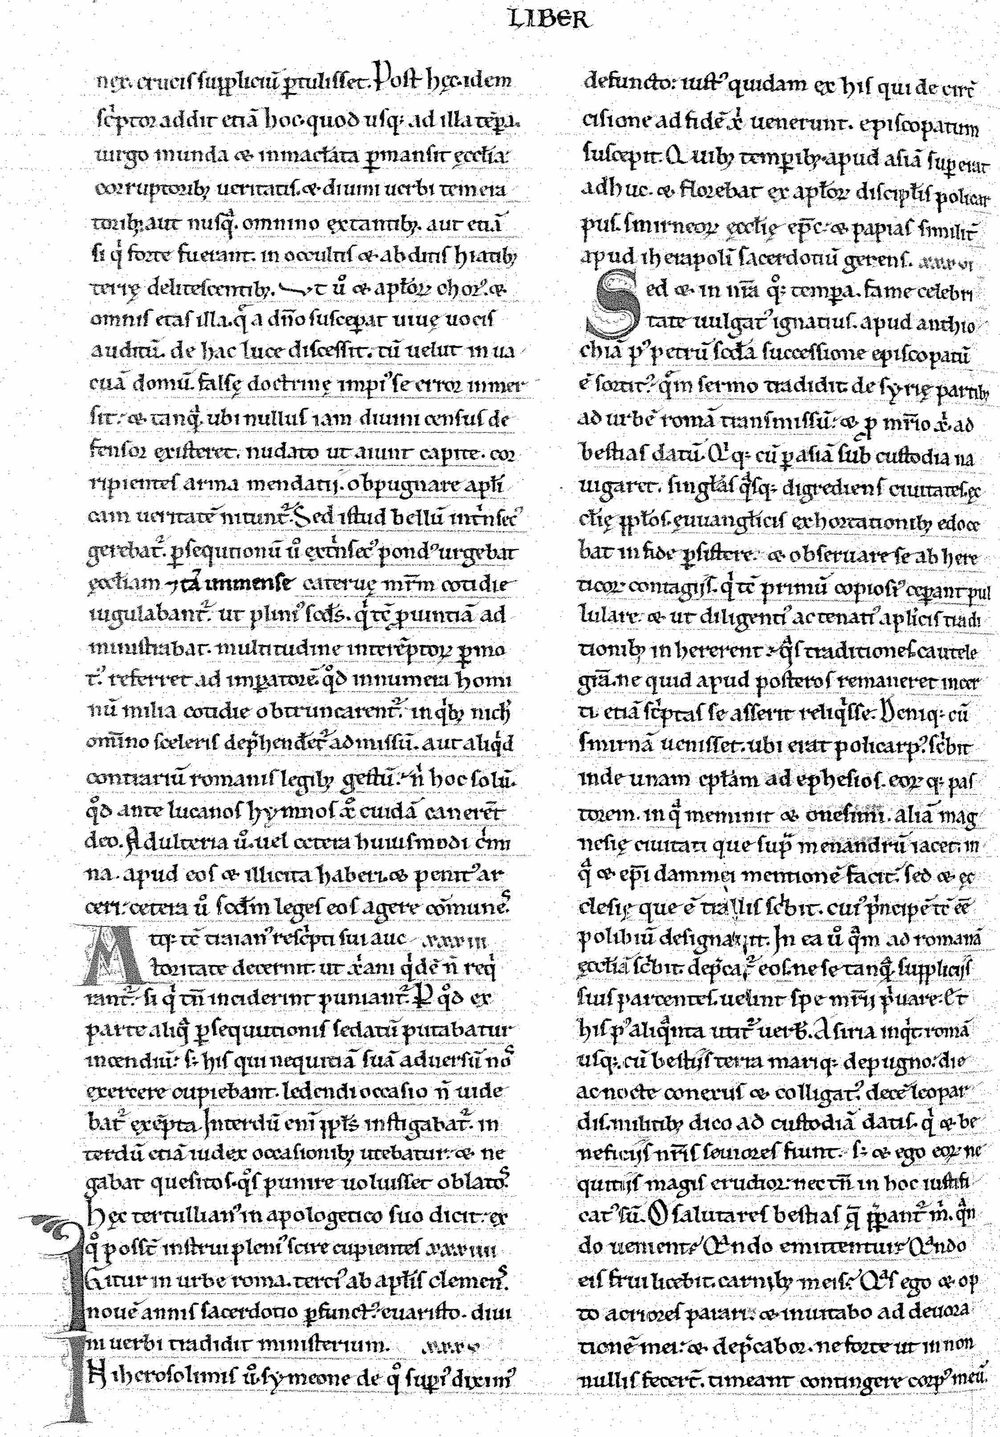 LIBER
nex. crucis suppliciū ꝑtulisset. Post hęc idem
sc̓ptor addit etiā hoc. quod usq; ad illa tēꝑa.
uirgo munda & inmac̄lata ꝑmansit ęcclīa:
corruptorib; ueritatis. & diuini uerbi temera
torib; aut nusq̄. omnino extantib;. aut etiā
si q̇ forte fuerant. in occultis & abditis hiatib;
terrę delitescentib;. Vt u̓o & apl̄oꝝ chor᷒. &
omnis etas illa. q̄ a dn̄o susceꝑat uiuę uocis
auditū. de hac luce discessit. tū uelut in ua
cuā domū. falsę doctrinę impi᷒ se error inmer
sit: & tanq̄. ubi nullus iam diuini census de
fensor existeret. nudato ut aiunt capite. cor
ripientes arma mendatij. obpugnare apl̄i
cam ueritatē nitunt᷑. Sed istud bellū int̓nsec᷒
gerebat᷑. ꝑsequtionū u̓o ext̓nsec᷒ pond᷒ urgebat
ęccl̄iam ⁊ tā immense cateruę mr̄m cotidie
iugulabant᷑. ut plini᷒ sc̄ds. q̇ tc̄ ꝓuintiā ad
ministrabat. multitudine interēptoꝝ ꝑmo
t᷒. referret ad imꝑatorē. qd̓ innumera homi
nū milia cotidie obtruncarent᷑. in q̇b; nich̄
om̄ino sceleris dep̄hendet᷑ admissū. aut aliq̇d
contrariū romanis legib; gestū. n̄ hoc solū.
qd̓ ante lucanos hymnos x̄o cuidā caner̄et
deo. Adulteria u̓o. uel cetera huiusmodi c̓mi
na. apud eos & illicita haberi. & penit᷒ ar
ceri: cetera u̓o sc̄dm leges eos agere cōmunes.
Atq; tc̄ traian᷒ resc̓pti sui auc xxxiii
toritate decernit. ut x̄ani q̇dē n̄ req̇
rant᷑. si q̇ tn̄ inciderint puniant᷑. P qd̓ ex
parte aliq̄ ꝑsequutionis sedatū putabatur
incendiū: s; his qui nequitiā suā aduersū nos
exercere cupiebant. ledendi occasio n̄ uide
bat᷑ exēpta. Interdū eni̅ pp̄ls instigabat᷑. in
terdū etiā iudex occasionib; utebatur. & ne
gabat quesitos. q̇s punire uoluisset oblatos.
Hęc tertullian᷒ in apologetico suo dicit: ex
q̊ possc̄ instrui pleni᷒ scire cupientes xxxiiii
IGitur in urbe roma. terci᷒ ab apl̄is clemens.
nouē annis sacerdotio ꝑfunct᷒. euaristo. diui
ni uerbi tradidit ministerium. xxxv
IN iherosolimis u̓o. symeone de q̊ supi᷒ diximᷣ
defuncto: iust᷒ quidam ex his qui de circ̄
cisione ad fidē x̄i uenerunt. episcopatum
suscepit. Quib; temporib; apud asiā suꝑerat
adhuc. & florebat ex apl̄oꝝ discipl̄is policar
pus. smirneoꝝ ęccl̄ię ep̄c. & papias similit̄
apud iherapoli̅ sacerdotiū gerens. xxxvi
Sed & in nr̄a q; tempa. fame celebri
tate uulgat᷒ ignatius. apud anthio
chiā p᷒ petrū sc̄da successione episcopatū
ē sortit᷒. q̄m sermo tradidit de syrię partib;
ad urbē romā transmissū: & ꝓ mr̄io x̄i. ad
bestias datū. Qiq; cū ꝑ asiā sub custodia na
uigaret. singl̄as q̇sq; digrediens ciuitates. ęc
cl̄ię pp̄l̄os. euuangl̄icis exhortationib; edoce
bat in fide ꝑsistere. & obseruare se ab here
ticoꝝ contagijs. q̇ tc̄ primū copiosi᷒ ceꝑant pul
lulare. & ut diligenti᷒ ac tenati᷒ apl̄icis tradi
tionib; inhererent. q̄s traditiones cautele
gr̄a. ne quid apud posteros remaneret incer
ti. etiā sc̓ptas se asserit reliq̇sse. Deniq; cū
smirnā uenisset. ubi erat policarp᷒. sc̓bit
inde unam ep̄lam ad ephesios. eoꝝ q; pas
torem. in q̄ meminit & onesimi. aliā mag
nesię ciuitati que sup̄ menandrū iacet. in
q̄ & ep̄i dammei mentionē facit. sed & ęc
clesię que ē trallis sc̓bit. cui᷒ p̓ncipē tc̄ ēē
polibiū designauit. In ea u̓o q̄m ad romanā
ęccl̄iā sc̓bit. dep̄cat᷑ eos. ne se tanq̄ supplicijs
suis parcentes. uelint spe mr̄ij p̓uare. Et
his p᷒ aliq̄nta utit᷑ uerb̄. A siria inqt̓ romā
usq;. cū bestijs terra mariq; depugno: die
ac nocte conexus & colligat᷒. decē leopar
dis. militib; dico ad custodiā datis. q̇ & be
neficijs nr̄is seuiores fiunt. s; & ego eoꝝ ne
quitijs magis erudior. nec tn̄ in hoc iustifi
cat᷒ sū. O salutares bestias q̄ p̄parant᷑ m̓. q̄n
do uenient? Q̄ndo emittentur? Q̄ndo
eis frui licebit. carnib; meis? Q̄s ego & op
to acriores parari. & inuitabo ad deuora
tionē mei: & dep̄cabor. ne forte ut in non
nullis fecerc̄. timeant contingere corp᷒ meū.